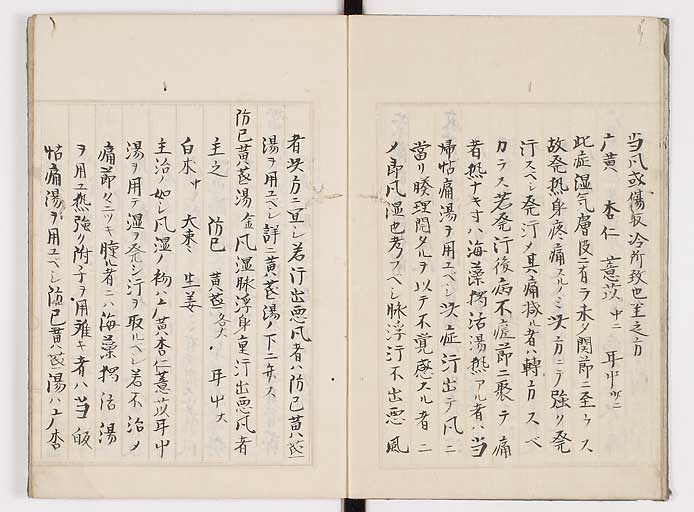 当風或傷取冷所致也主之方
广黄 杏仁 薏苡 中ニ 耳中
此症湿気膚皮ニ有ラ未タ関節ニ至ラス
故発熱身疼痛スルノミ此方ニテ強ク発
汗スベシ発汗ノ其痛減ル者ハ轉方スベ
カラス若発汗後病不瘥節ニ聚テ痛
者熱ナキ寸ハ海藻獨活湯熱アル者ハ当
帰帖痛湯ヲ用ユベシ此症汗出テ風ニ
當リ腠理閉タルヲ以テ不覚感スル者ニ
メ即風湿也考フベシ脉浮汗不出悪風
者此方ニ宜シ若汗出悪風者ハ防已黄芪
湯ヲ用ユベシ詳ニ黄芪湯ノ下ニ弁ス
防已黄芪湯 金 風湿脉浮身重汗出悪風者
主之 防已 黄芪 各大 耳中
白朮 中 大棗 生姜
主治ノ如シ風湿ノ初ハ广黄杏仁薏苡耳中
湯ヲ用テ湿ヲ発シ汗ヲ取ルベシ若不治ノ
痛節ニツキ腫ル者ニハ海藻獨活湯
ヲ用ユ熱強ク附子ヲ用難キ者ハ当皈
帖痛湯ヲ用ユベシ防已黄芪湯ハ广杏